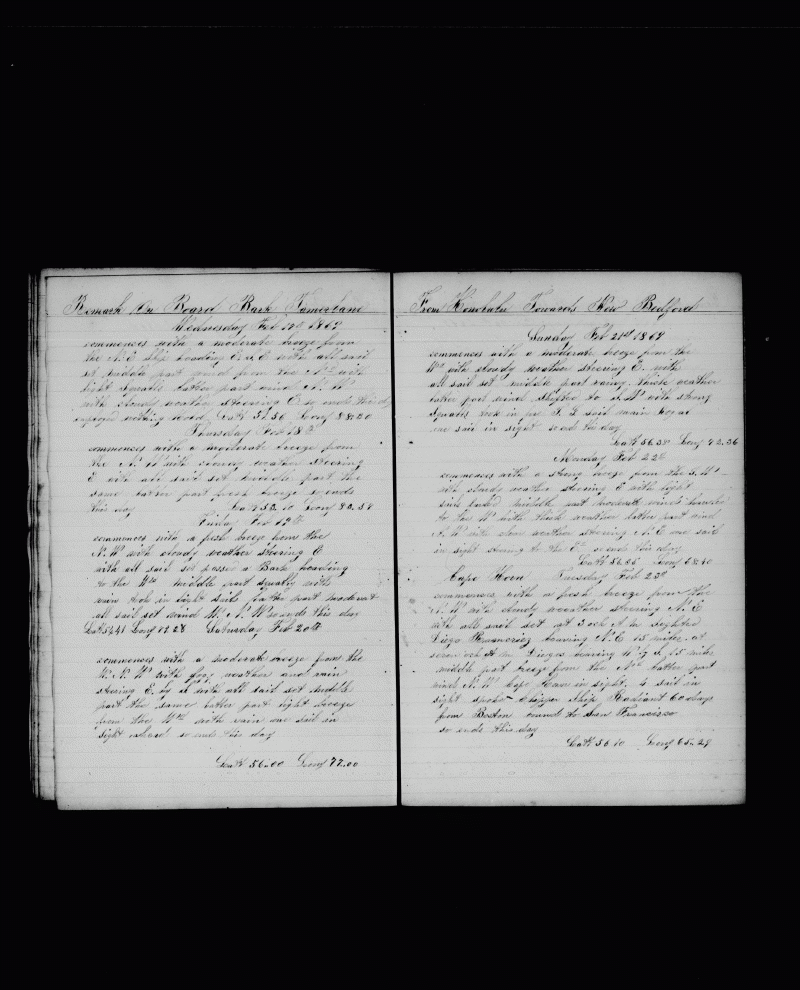 Remark On Board Bark Tamerlane
Wednesday Feb 17th 1869
commences with a moderate breeze from
the N.E. ship heading E. with all sail
set middle part wind from the with
light squalls latter part wind N. W
with cloudy weather steering E so ends this day
employed nothing Latt 51.56 Long 88.20
Thursday Feb 18th
commences with a moderate breeze from
the N. W with weather steering
E with all sail set middle part the
same latter part fresh breeze so ends
this day Latt 52.10 Long 82.58
Friday Feb 19th
commences with a fresh breeze from the
N.W with cloudy weather steering E
with all sail set passed a Bark heading
to the Wd middle part squally with
rain took in light sails latter part moderate
all sail set wind W. N. W so ends this day
Latt 54.41 Long 79.28 Saturday Feb 20th
commences with a moderate breeze from the
W. N. W with foggy weather and rain
steering E. by S. with all sail set middle
part the same latter part light breeze
from the Wd with rain one sail in
sight ahead so ends this day
Latt 56.00 Long 77.00
From Honolulu Towards New Bedford
Sunday Feb 21st 1869
commences with a moderate breeze from the
Wd with cloudy weather steering E. with
all sail set middle part rainy, thick weather
latter part wind shifted to S.W with strong
squales took in sail main
one sail in sight so ends this day
Latt 56.38 Long 72.36
Monday Feb 22d
commences with a strong breeze from the S.W
with cloudy weather steering E with light
sails furled middle part moderate wind
to the W with thick weather latter part wind
N.W with clear weather steering N.E one sail
in sight to the so ends this day
Latt 56.56 Long 68.40
Cape Horn Tuesday Feb 23d
commences with a fresh breeze from the
N. W with cloudy weather steering N. E
with all sail set at 3 ock A.m sighted
Diego Rameriez bearing N. E 15 miles. at
seven ock A m Diegos bearing W. 15 miles
middle part breeze from the latter part
wind N. W Cape Horn in sight. 4 sail in
sight spoke clipper ship Radiant 60 days
from Boston bound to San Francisco
so ends this day
Latt 56.10 Long 65.29